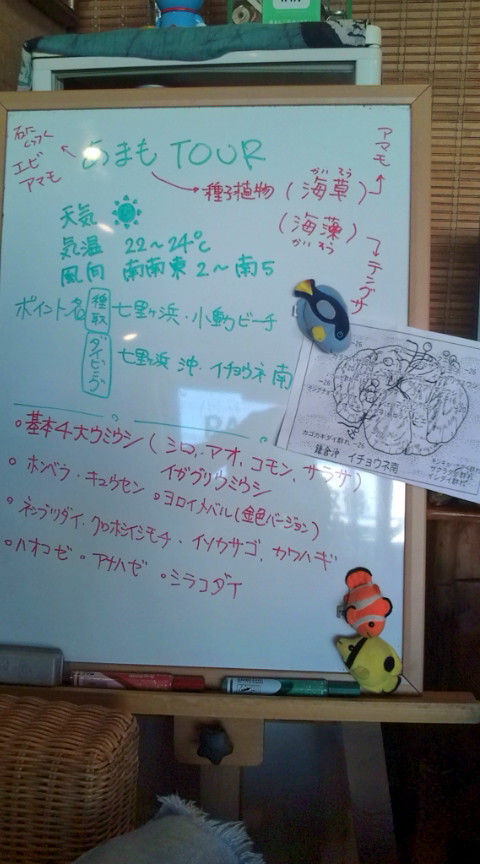 あまも TOUR
石に
くっつく
エビ
アマモ
種子植物 (海草)
かいそう
アマモ
(海藻)
かいそう
テングサ
天気
気温 22〜24℃
風向 南南東2〜南5
ポイント名 種取 七里ヶ浜・小動ビーチ
ダイビング 七里ヶ浜 沖、イチョウネ南
カゴカキダイ群れ -26
鎌倉沖 イチョウネ南
○基本4大ウミウシ (シロ、アオ、コモン、サラサ)
イガグリウミウシ
○ホンベラ・キュウセン ○ヨロイメバル(金色バージョン)
○ネンブツダイ、クロホシイシモチ・イソカサゴ、カワハギ
○ハオコゼ ○アナハゼ ○シラコダイ